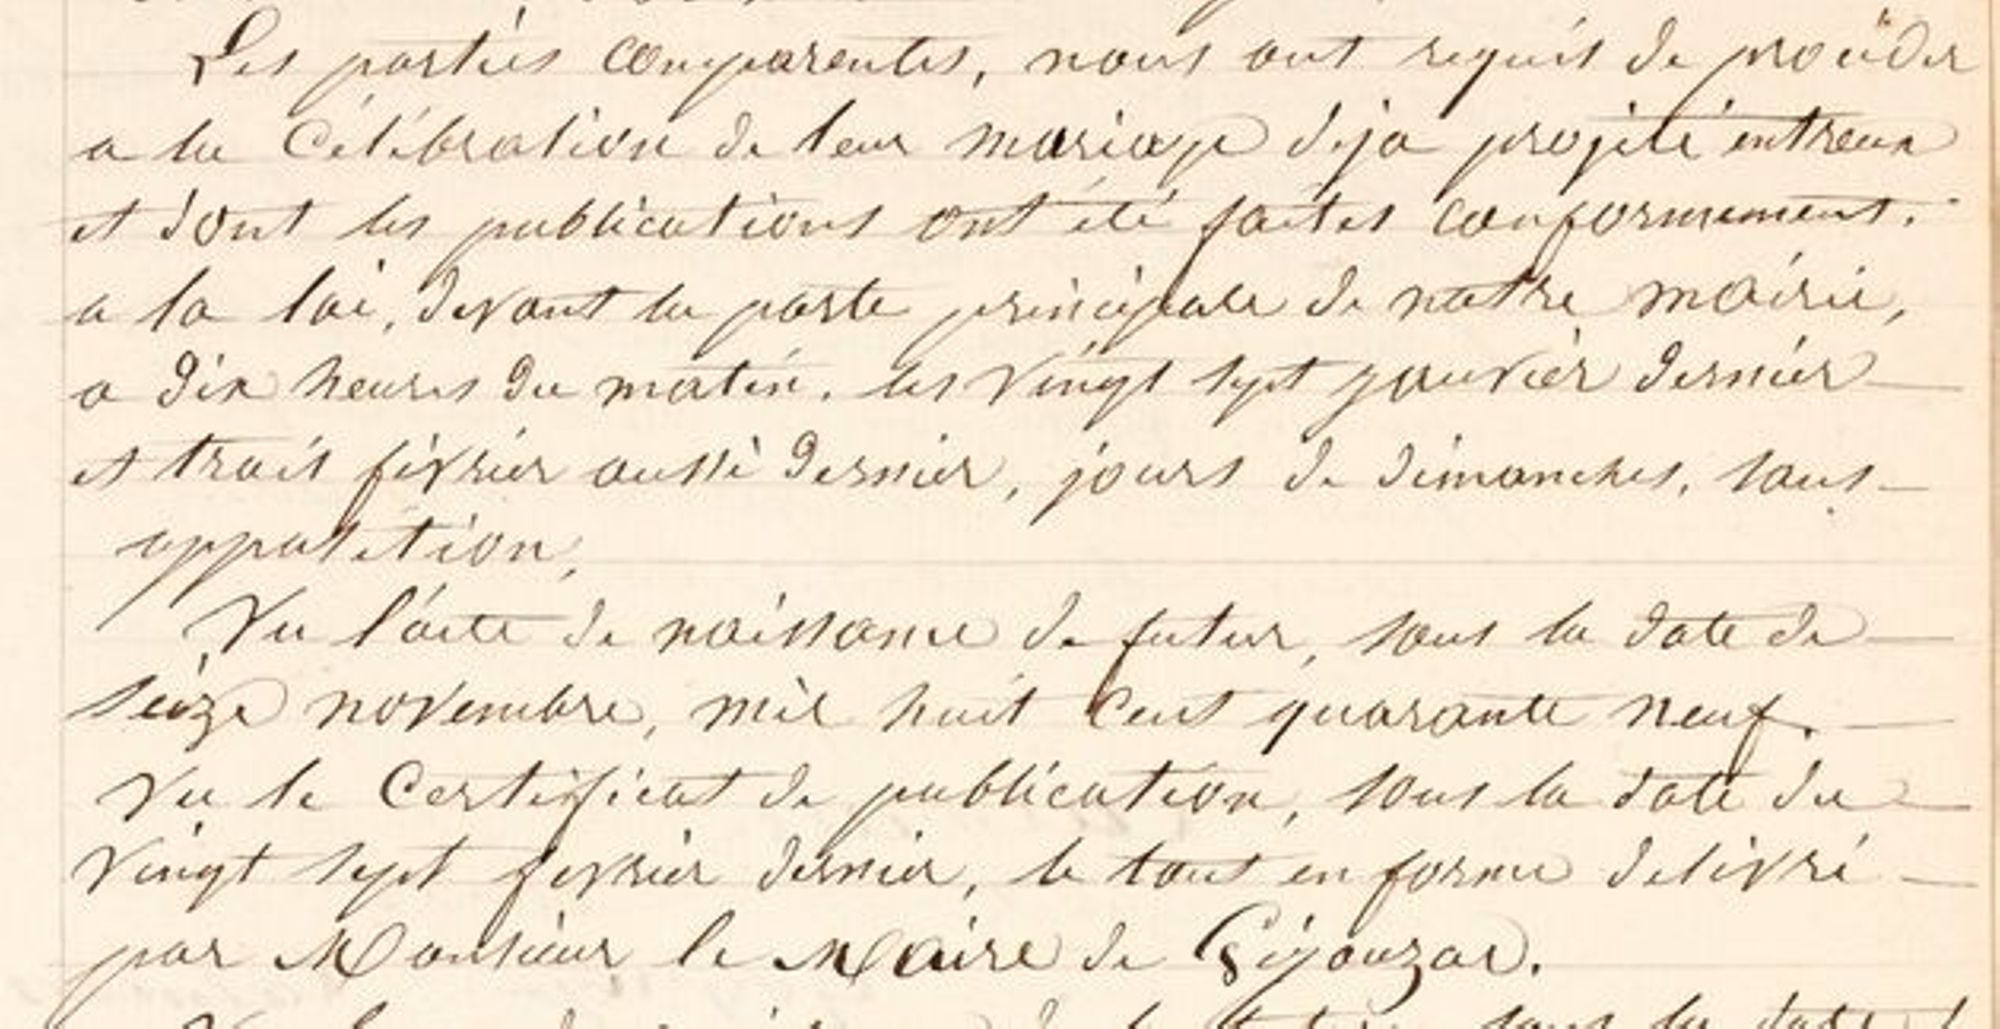 Les parties comparentes, nous ont requis de procéder
a la Célébration de leur mariage deja projeté entreux
et dont les publications ont été faites conformement.
a la loi, devant la porte principale de notre mairie,
a dix heures du matin. les vingt sept janvier dernier
et trois février aussi dernier, jours de dimanches, sans
oppotition,
Vu l'acte de naissance de futur, sous la date de
seize novembre, mil huit cent quarante neuf.
Vu le Certificat de publication, sous la date du
vingt sept fevrier dernier, le tout en forme delivré
par Monsieur le Maire de Gijouzar.